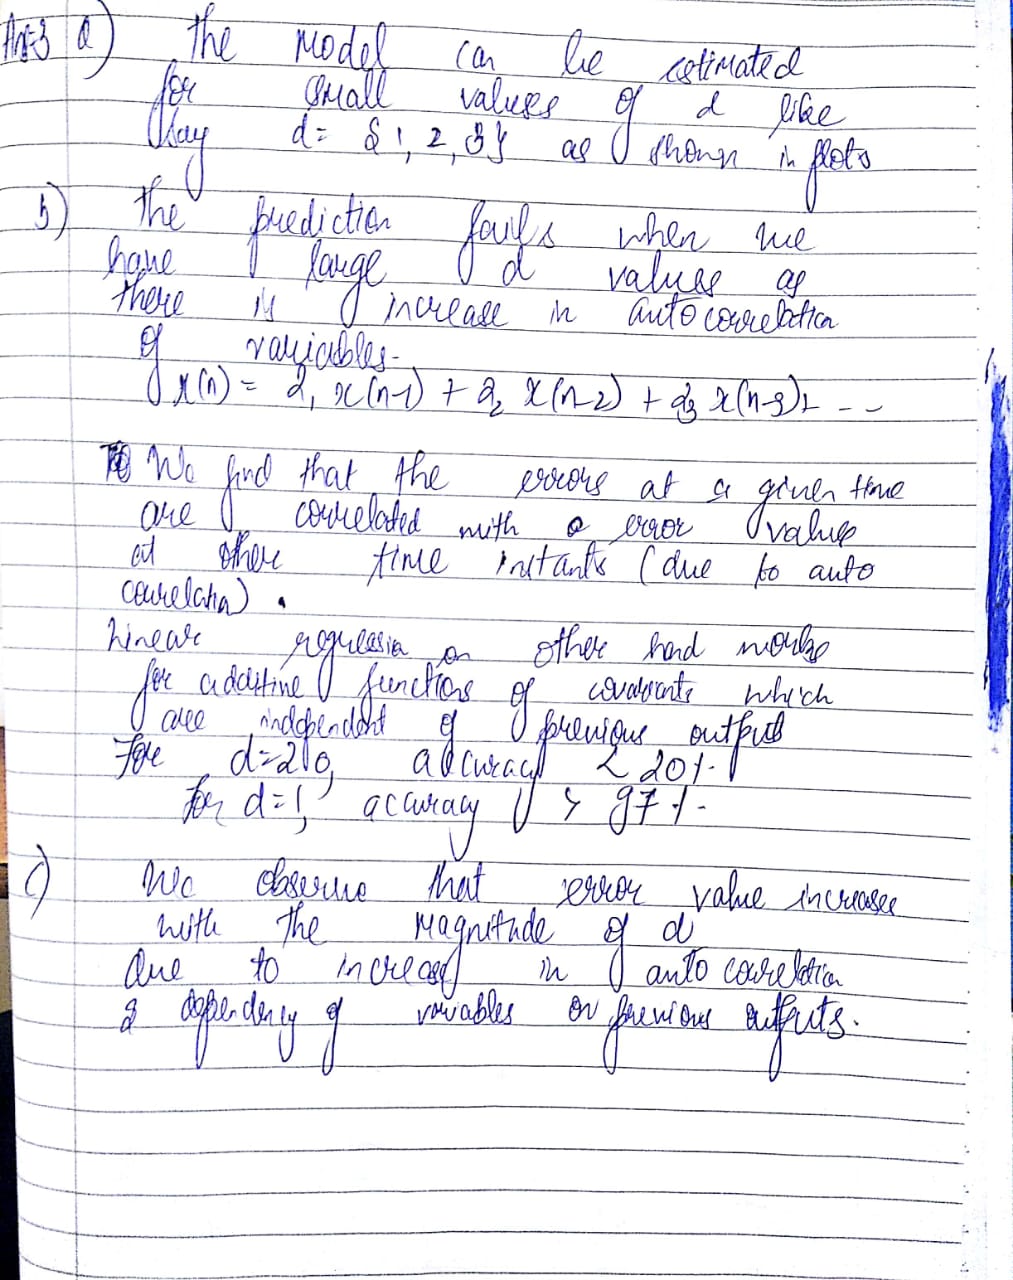 Ans-3 a) The Model can be estimated
for small values of d like
say d = {1, 2, 3} as shown in plots
b) The prediction fails when we
have large d values as
there is increase in autocorrelation
of variables-
x(n) = a₁ x(n-1) + a₂ x(n-2) + a₃ x(n-3) + --
We find that the errors at a given time
are correlated with a error value
at other time instants (due to auto
correlation).
Linear regression on other hand works
for additive functions of covariants which
are independent of previous output
For d=20, accuracy < 20%.
for d=1, accuracy > 97%.
c) We observe that error value increases
with the Magnitude of d
due to increase in auto correlation
& dependency of variables on previous outputs.